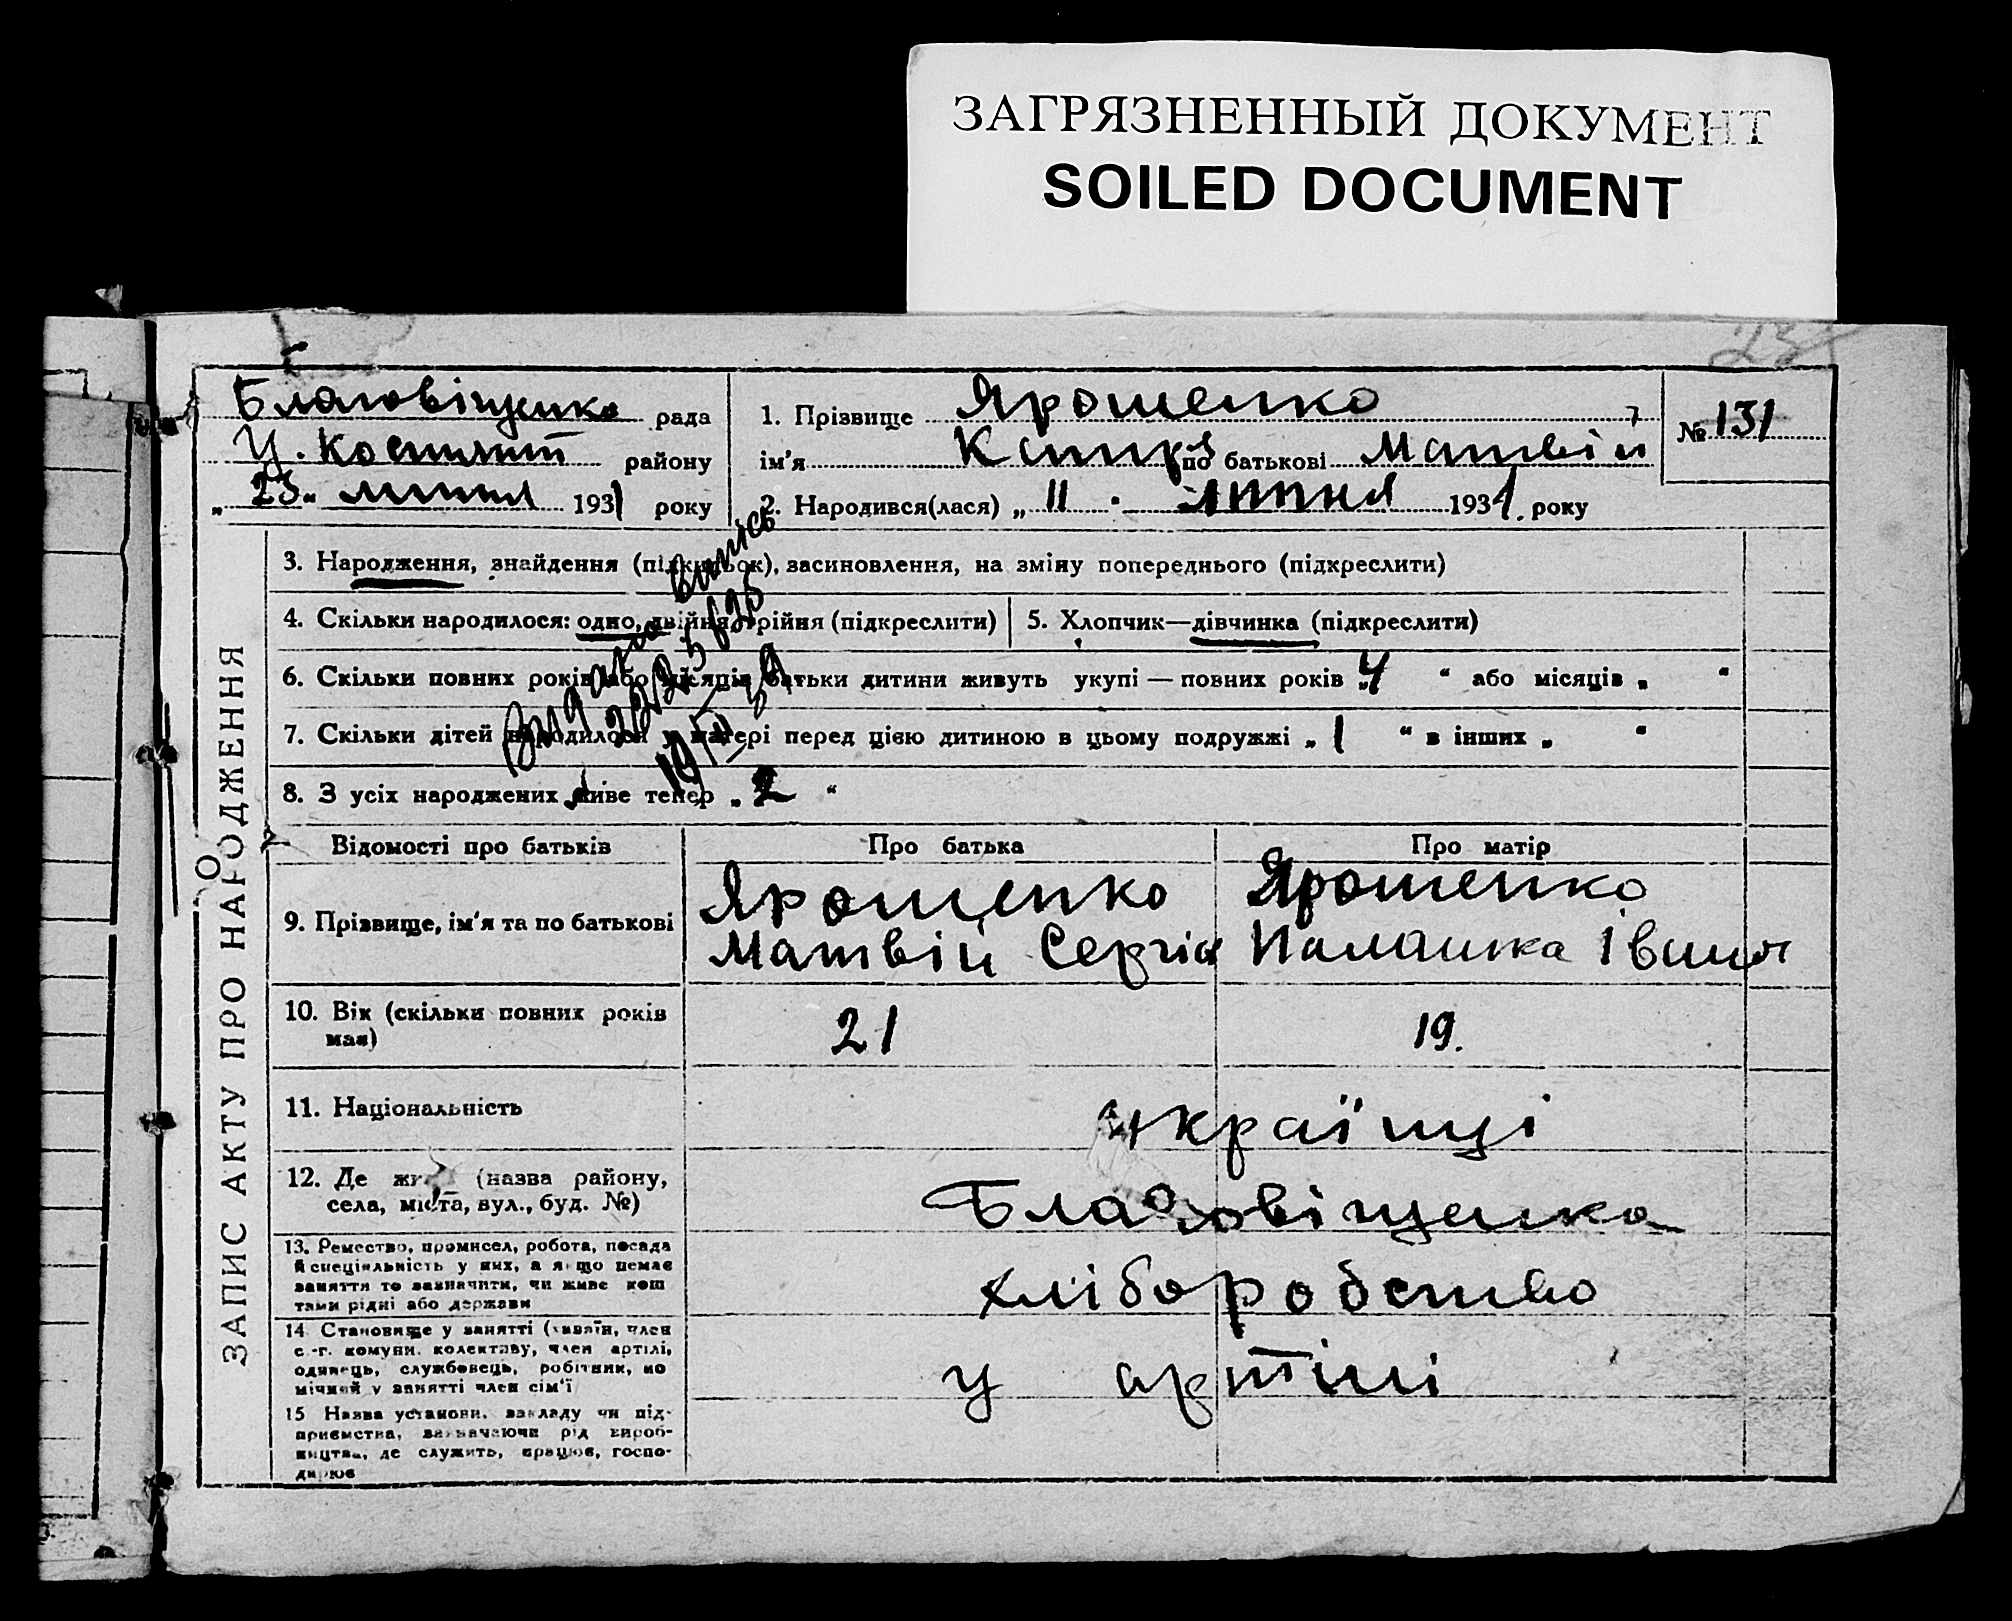 ЗАГРЯЗНЕННЫЙ ДОКУМЕНТ
SOILED DOCUMENT
Благовіщенко рада
району
„ 23 “ липня 1931 року
1. Прізвище Ярошенко
ім'я по батькові Матвій
2. Народився(лася) „ 11 “ липня 1931 року
№ 131
ЗАПИС АКТУ ПРО НАРОДЖЕННЯ
3. Народження, знайдення (підкидьок), засиновлення, на зміну попереднього (підкреслити)
4. Скільки народилося: одно, двійня, трійня (підкреслити)
5. Хлопчик—дівчинка (підкреслити)
6. Скільки повних років або місяців батьки дитини живуть укупі — повних років „ 4 “ або місяців „ “
7. Скільки дітей народилося у матері перед цією дитиною в цьому подружжі „ 1 “ в інших „ “
8. З усіх народжених живе тепер „ 2 “
Відомості про батьків
Про батька
Про матір
9. Прізвище, ім'я та по батькові
Ярошенко
Матвій Сергій
Ярошенко
Палашка Іван
10. Вік (скільки повних років
має)
21
19.
11. Національність
українці
12. Де (назва району,
села, міста, вул., буд. №)
Благовіщенка
13. Ремество, промисел, робота, посада
й спеціяльність у них, а якщо немає
заняття то зазначити, чи живе кош
тами рідні або держави
хліборобство
14 Становище у занятті (хазяїн, член
с.-г. комуни, колективу, член артілі,
одинець, службовець, робітник, по
мічний у занятті член сім'ї
у артілі
15 Назва установи, закладу чи під-
приємства, зазначаючи рід вироб-
ництва, де служить, працює, госпо-
дарює